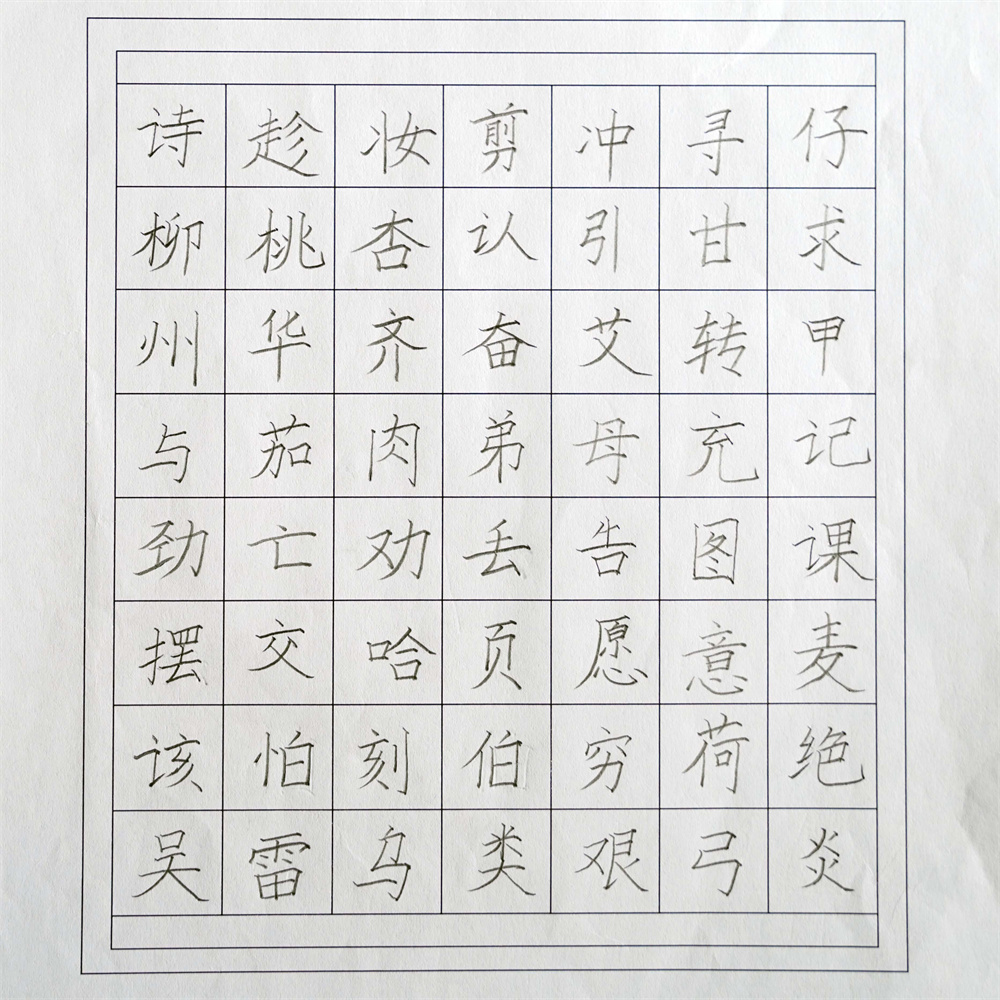 诗趁妆剪冲寻仔
柳桃杏认引甘求
州华齐奋艾转甲
与茄肉弟母充记
劲亡劝丢告图课
摆交哈页愿意麦
该怕刻伯穷荷绝
吴雷乌类艰弓炎